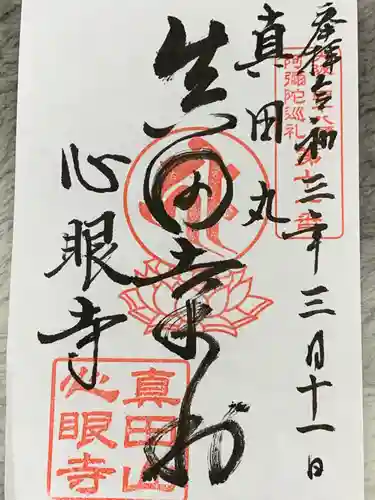 奉拝 令和三年三月十一日
阿彌陀巡礼
真田丸
真田幸村
心眼寺
真田山
心眼寺